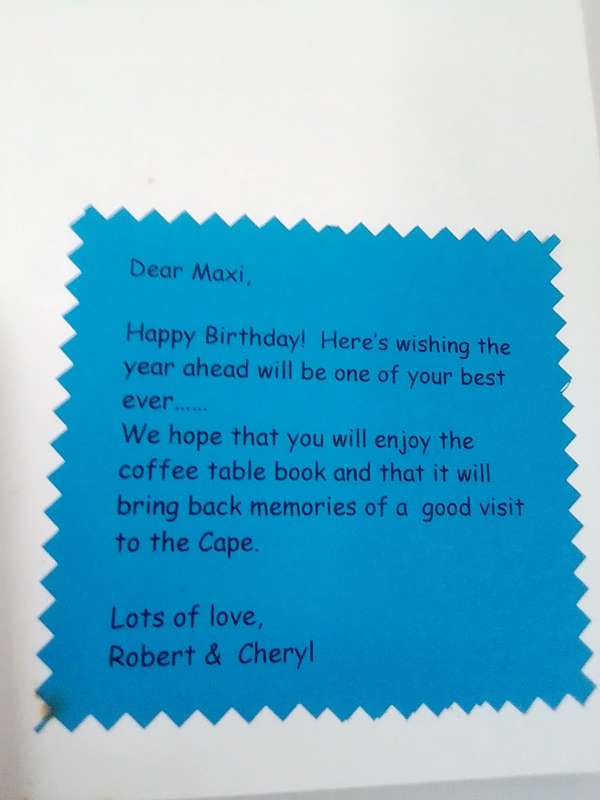 Dear Maxi,
Happy Birthday! Here's wishing the
year ahead will be one of your best
ever......
We hope that you will enjoy the
coffee table book and that it will
bring back memories of a good visit
to the Cape.
Lots of love,
Robert & Cheryl